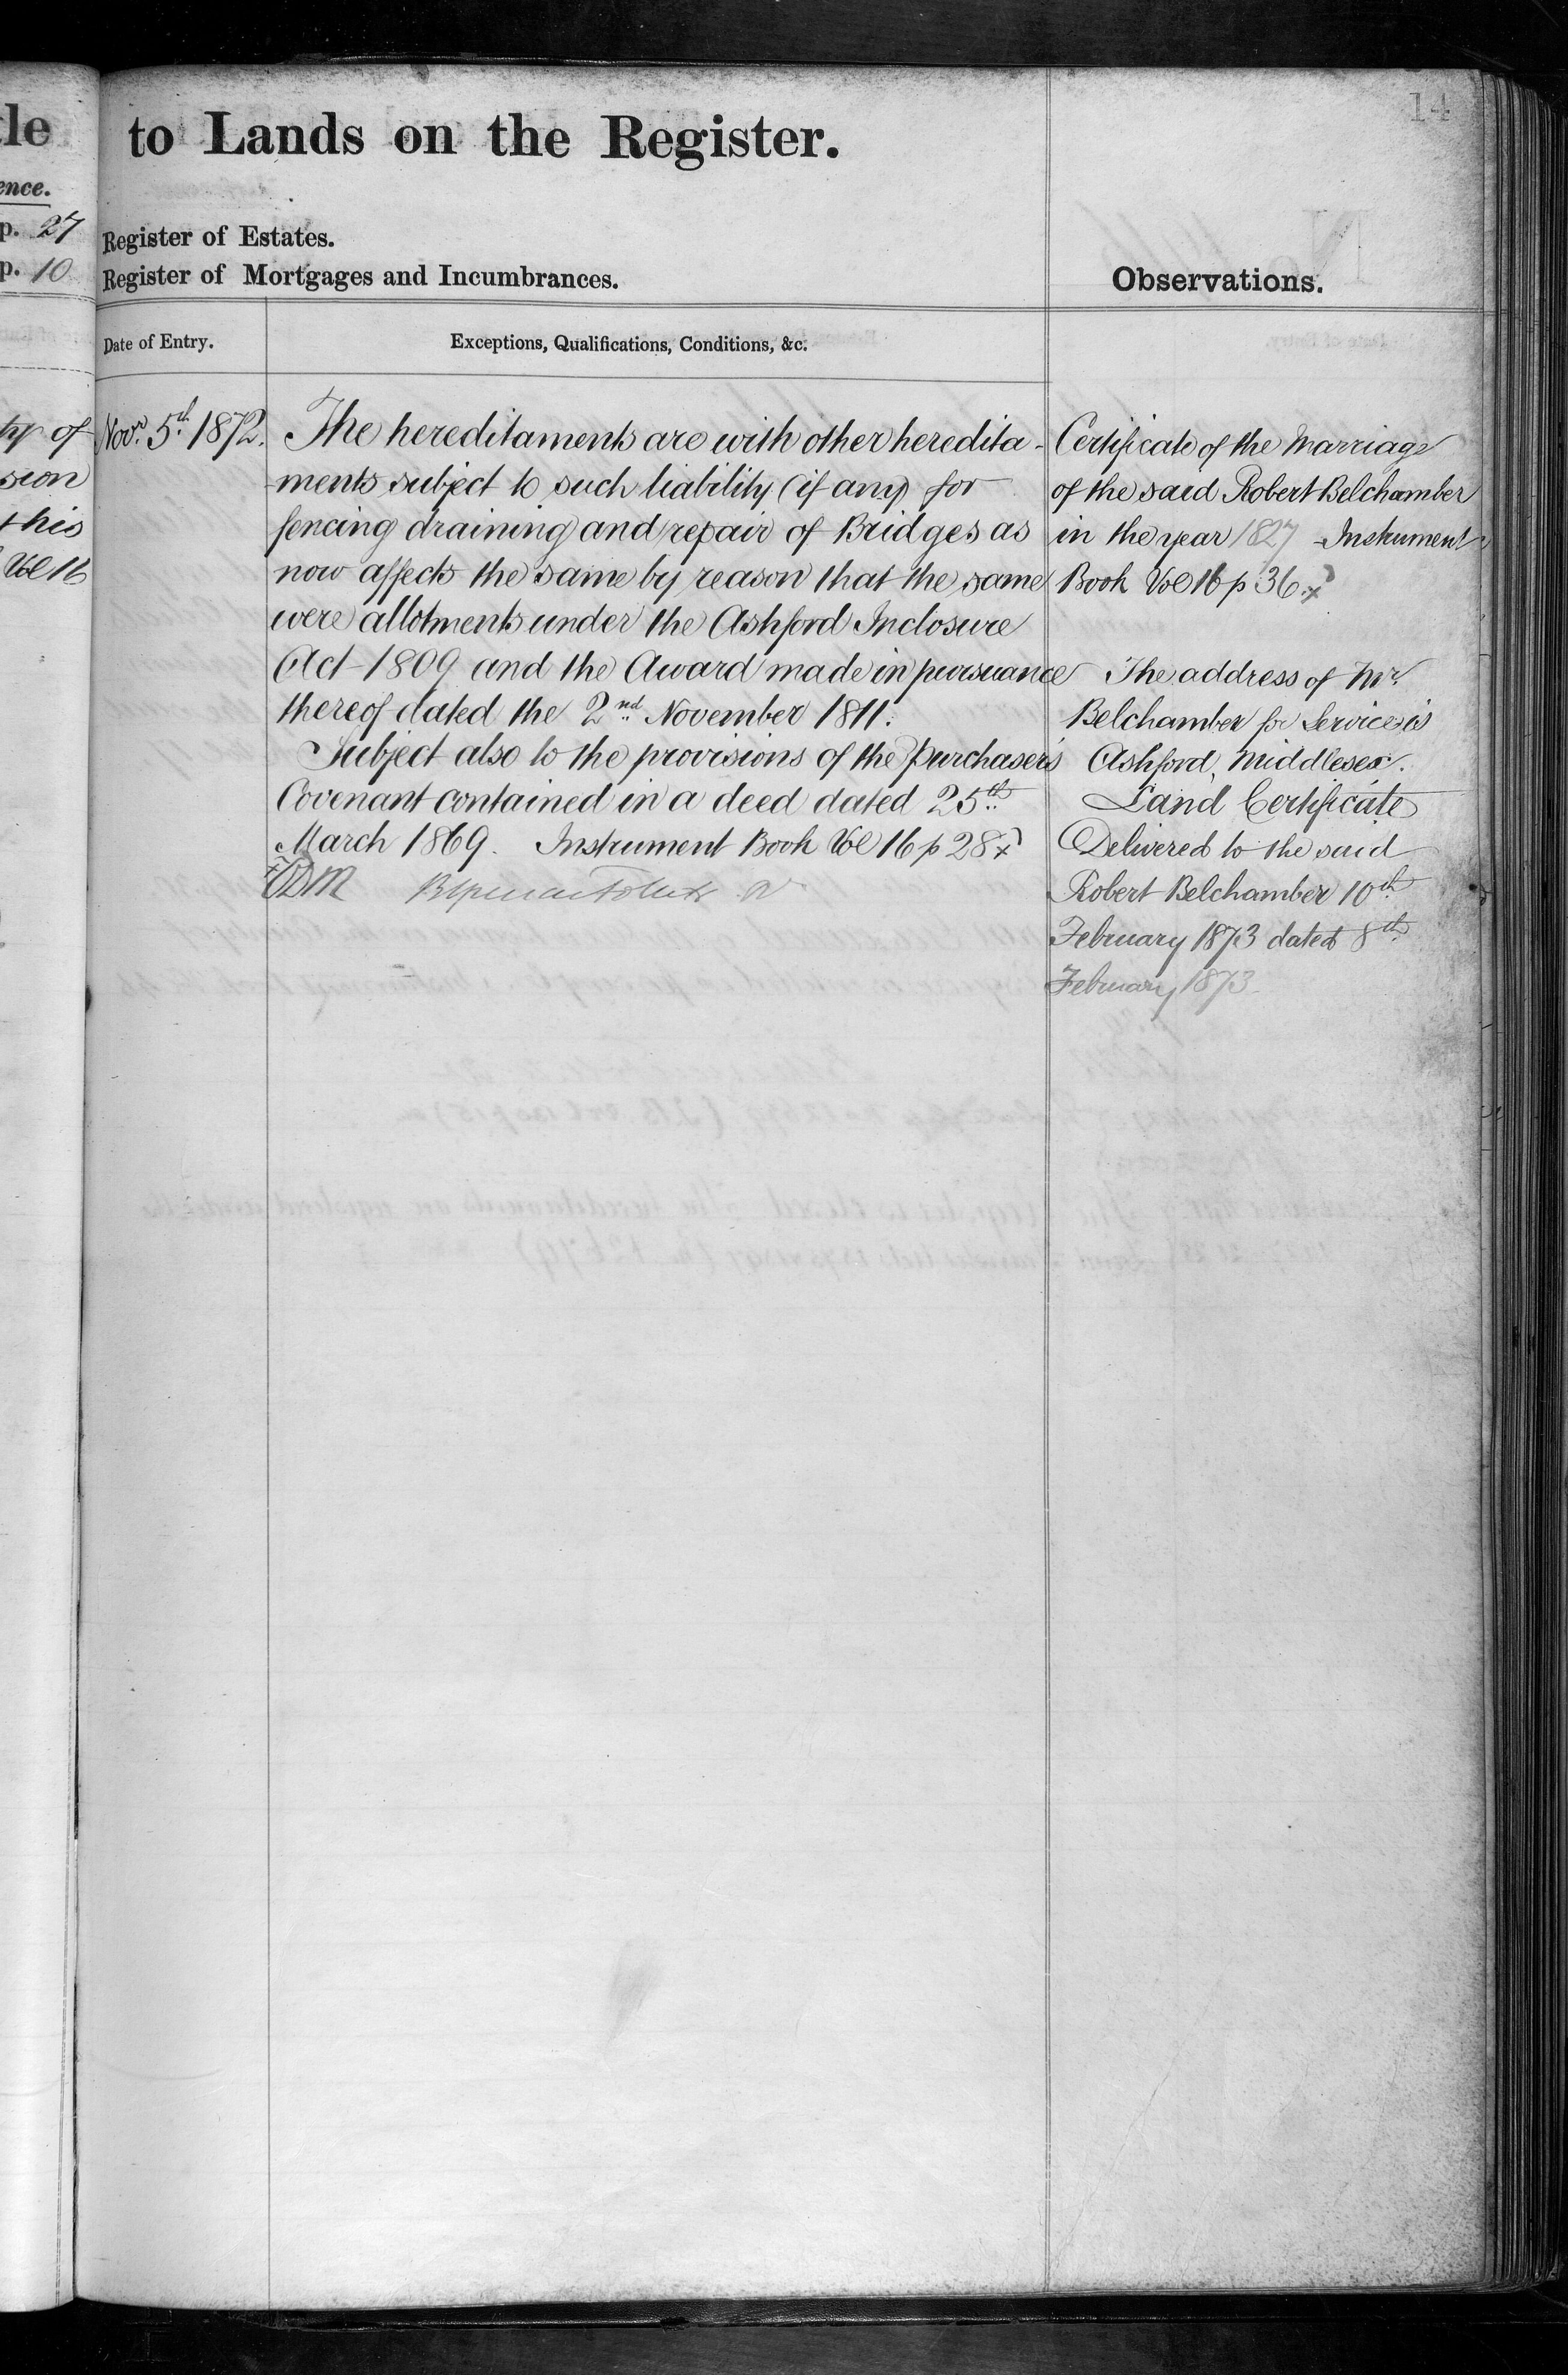 14
to Lands on the Register.
ence.
p. 27
p. 10
Register of Estates.
Register of Mortgages and Incumbrances.
Observations.
Date of Entry.
Exceptions, Qualifications, Conditions, &c.
of
sion
this
Vol 16
Novr. 5th 1872.
The hereditaments are with other heredita-
ments subject to such liability (if any) for
fencing draining and repair of Bridges as
now affects the same by reason that the same
were allotments under the Ashford Inclosure
Act 1809 and the Award made in pursuance
thereof dated the 2nd November 1811.
Subject also to the provisions of the purchaser's
Covenant contained in a deed dated 25th
March 1869. Instrument Book Vol 16 p 28 x
Certificate of the Marriage
of the said Robert Belchamber
in the year 1827 - Instrument
Book Vol 16 p 36. x
The address of Mr.
Belchamber for Service is
Ashford, Middlesex.
Land Certificate
Delivered to the said
Robert Belchamber 10th
February 1873 dated 8th
February 1873